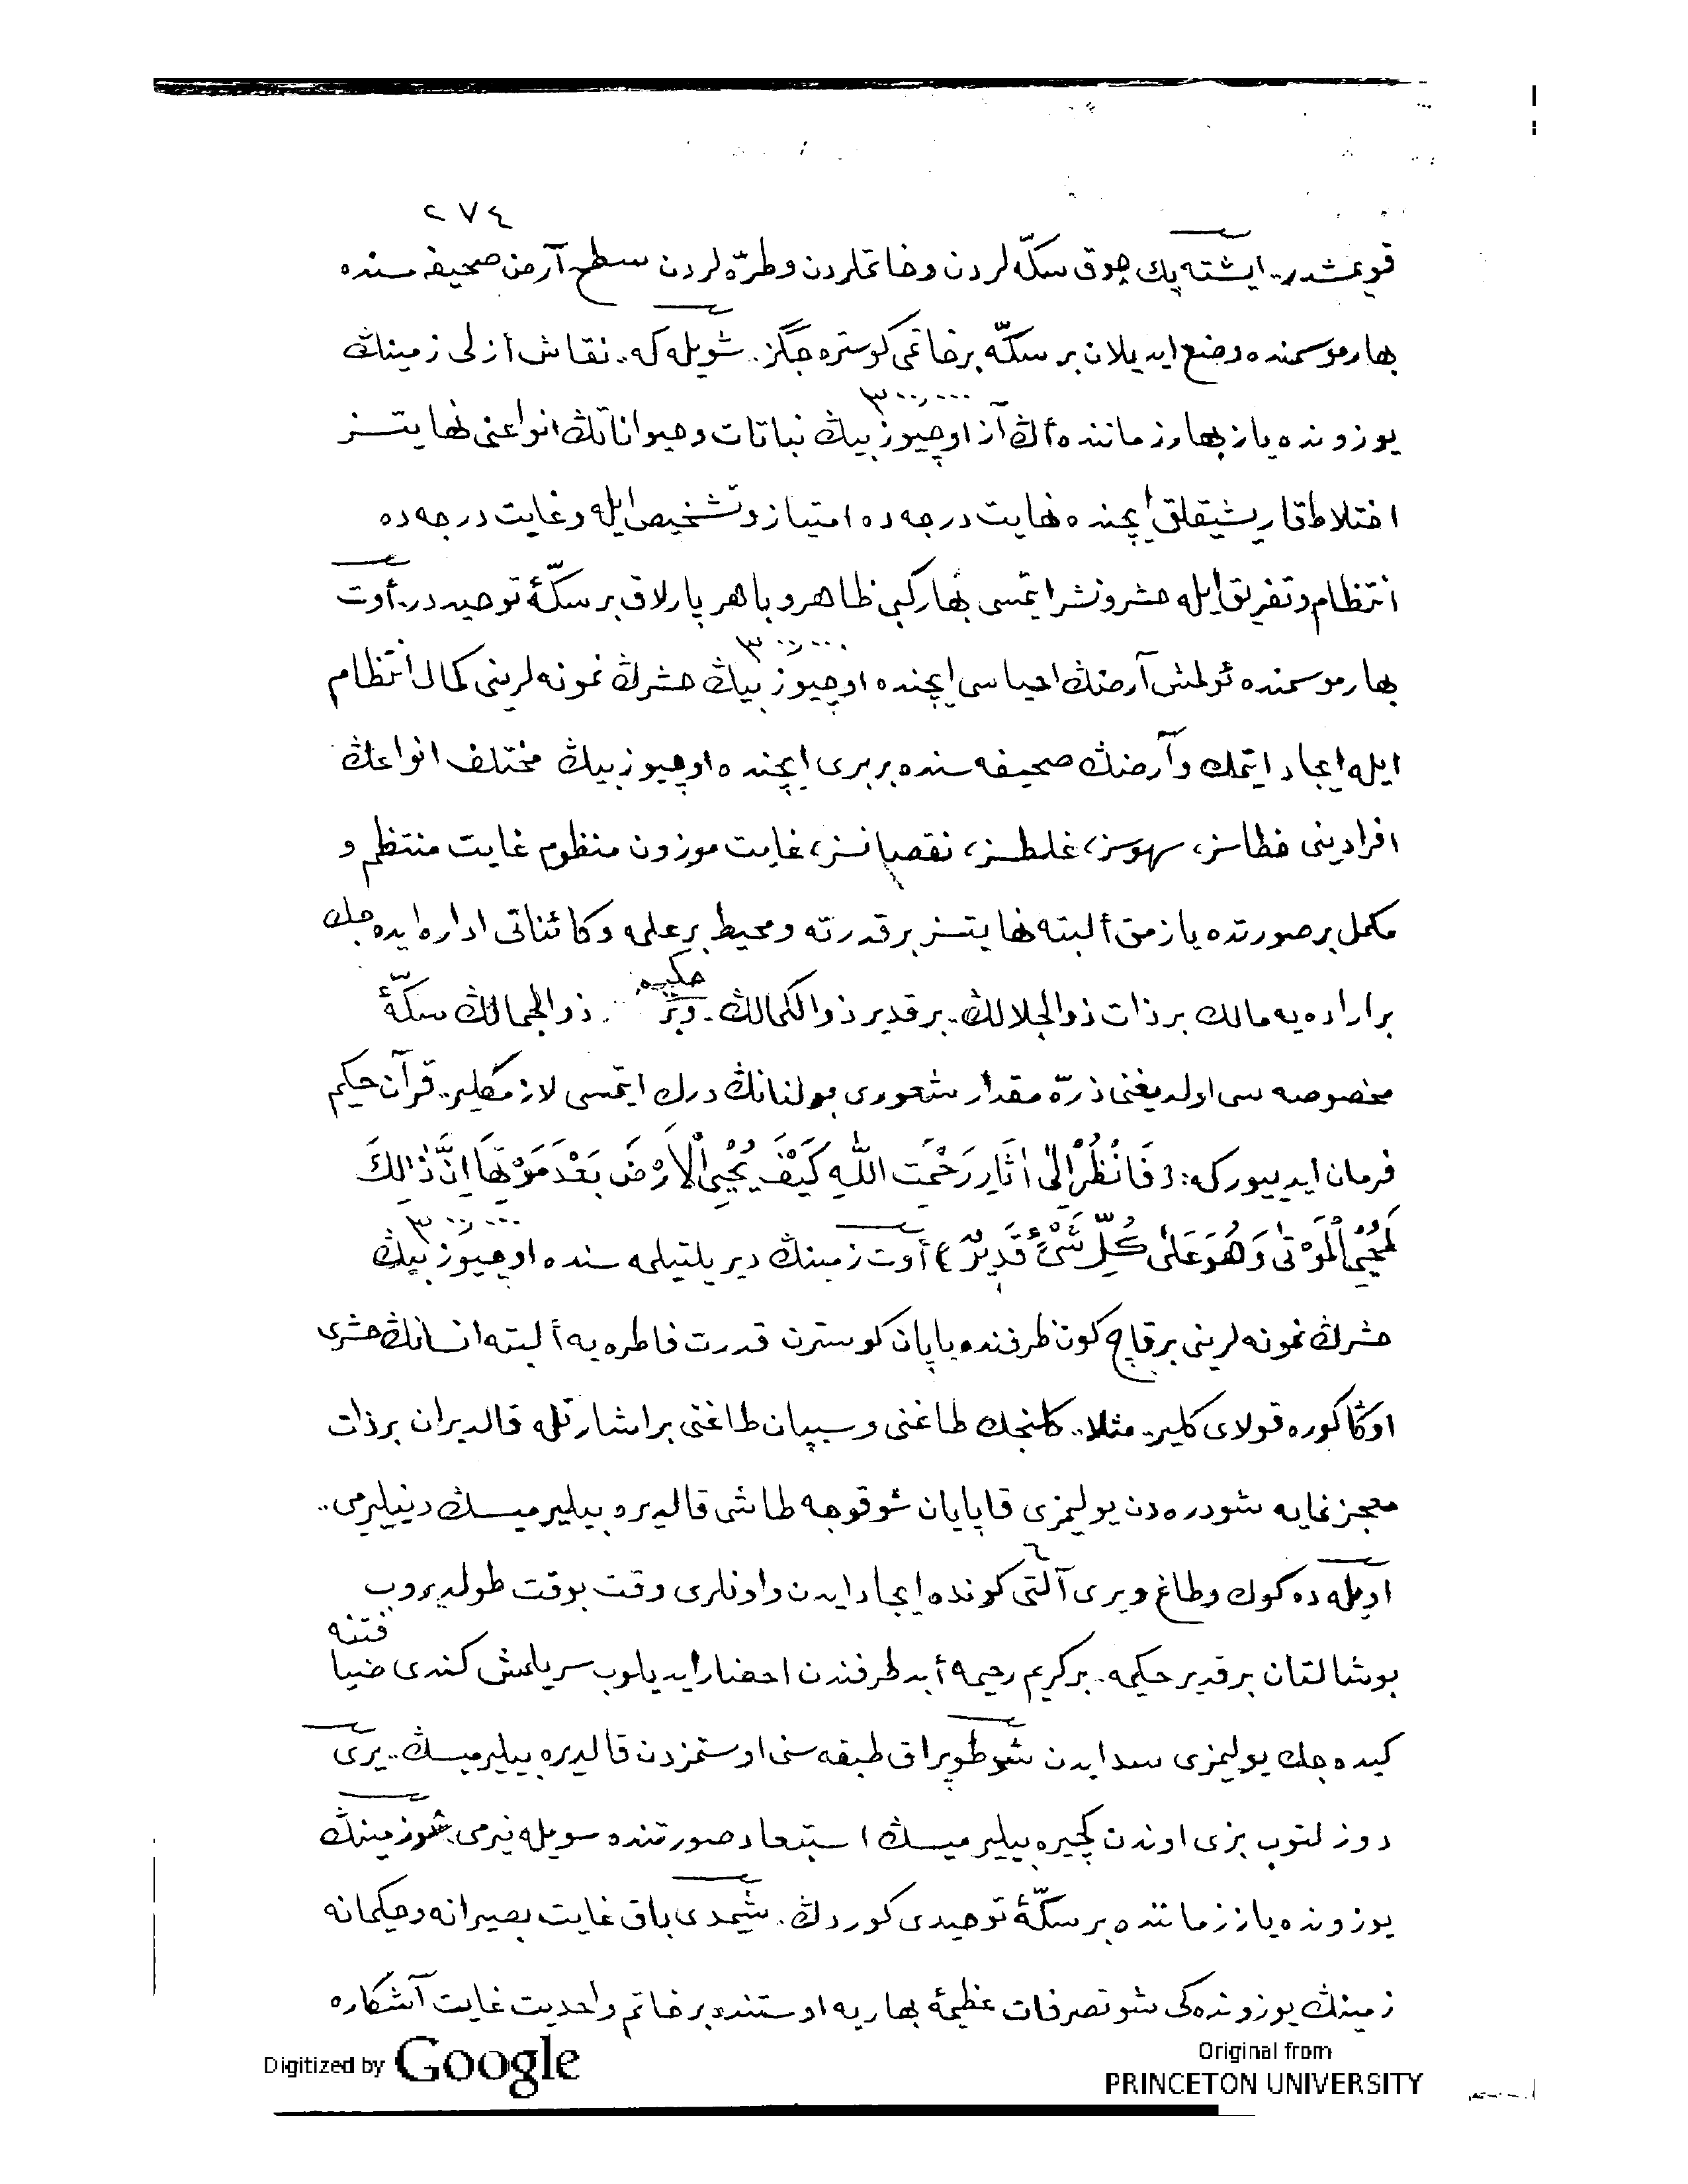 ٢٧٤
قويمشدر.. ايشته پك چوق سكّه لردن وخاتملردن وطرّه لردن سطح أرض صحيفه سنده
بهار موسمنده وضع ايديلان بر سكّه بر خاتمى كوستره جگز.. شويله كه.. نقاش أزلى زمينڭ
٣٠٠,٠٠٠
يوزونده ياز بهار زماننده أڭ آز اوچيوز بيڭ نباتات وحيواناتڭ انواعنى نهايتسز
اختلاط قاريشيقلق ايچنده نهايت درجه ده امتياز وتشخيص ايله وغايت درجه ده
انتظام وتفريق ايله حشر ونشر ايتمسى بهار كبى ظاهر وباهر پارلاق بر سكّۀ توحيددر.. أوت
٣٠٠,٠٠٠
بهار موسمنده ئولمش أرضڭ احياسى ايچنده اوچيوز بيڭ حشرڭ نمونه لرينى كمال انتظام
ايله ايجاد ايتمك وأرضڭ صحيفه سنده بربرى ايچنده اوچيوز بيڭ مختلف انواعڭ
افرادينى خطاسز، سهوسز، غلطسز، نقصانسز، غايت موزون منظوم غايت منتظم و
مكمل بر صورتده يازمق ألبته نهايتسز بر قدرته ومحيط بر علمه وكائناتى اداره ايده جك
بر اراده يه مالك بر ذات ذوالجلالڭ.. بر قدير ذوالكمالڭ.. وبر حكيم ذوالجمالڭ سكّۀ
مخصوصه سى اولديغنى ذرّه مقدار شعورى بولنانڭ درك ايتمسى لازمكلير.. قرآن حكيم
فرمان ايدييوركه: ﴿فَانْظُرْ اِلٰى اٰثَارِ رَحْمَتِ اللّٰهِ كَيْفَ يُحْيِى الْاَرْضَ بَعْدَ مَوْتِهَا اِنَّ ذٰلِكَ
٣٠٠,٠٠٠
لَمُحْيِى الْمَوْتٰى وَهُوَ عَلٰى كُلِّ شَىْءٍ قَدِيرٌ﴾ أوت زمينڭ ديريلتيلمه سنده اوچيوز بيڭ
حشرڭ نمونه لرينى برقاچ كون ظرفنده ياپان كوسترن قدرت فاطره يه ألبته انسانڭ حشرى
اوڭا كوره قولاى كلير.. مثلا.. كلنجك طاغنى وسيپان طاغنى بر اشارتله قالديران بر ذات
معجزنمايه شو دره دن يوليمزى قاپايان شو قوجه طاشى قالديره بيليرميسڭ دينيليرمى..
٦
اويله ده كوك وطاغ ويرى آلتى كونده ايجاد ايدن واونلرى وقت بوقت طولديروب
بوشالتان بر قدير حكيمه.. بر كريم رحيمه أبد طرفندن احضار ايديلوب سريلمش كندى ضيافتنه
كيده جك يوليمزى سد ايدن شو طوپراق طبقه سنى اوستمزدن قالديره بيليرميسڭ.. يرى
دوزلتوب بزى اوندن كچيره بيليرميسڭ استبعاد صورتنده سويله نيرمى. شو زمينڭ
يوزونده ياز زماننده بر سكّۀ توحيدى كوردڭ. شيمدى باق غايت بصيرانه وحكيمانه
زمينڭ يوزونده كى شو تصرفات عظيمۀ بهاريه اوستنده بر خاتم واحديت غايت آشكاره
Digitized by Google
Original from
PRINCETON UNIVERSITY